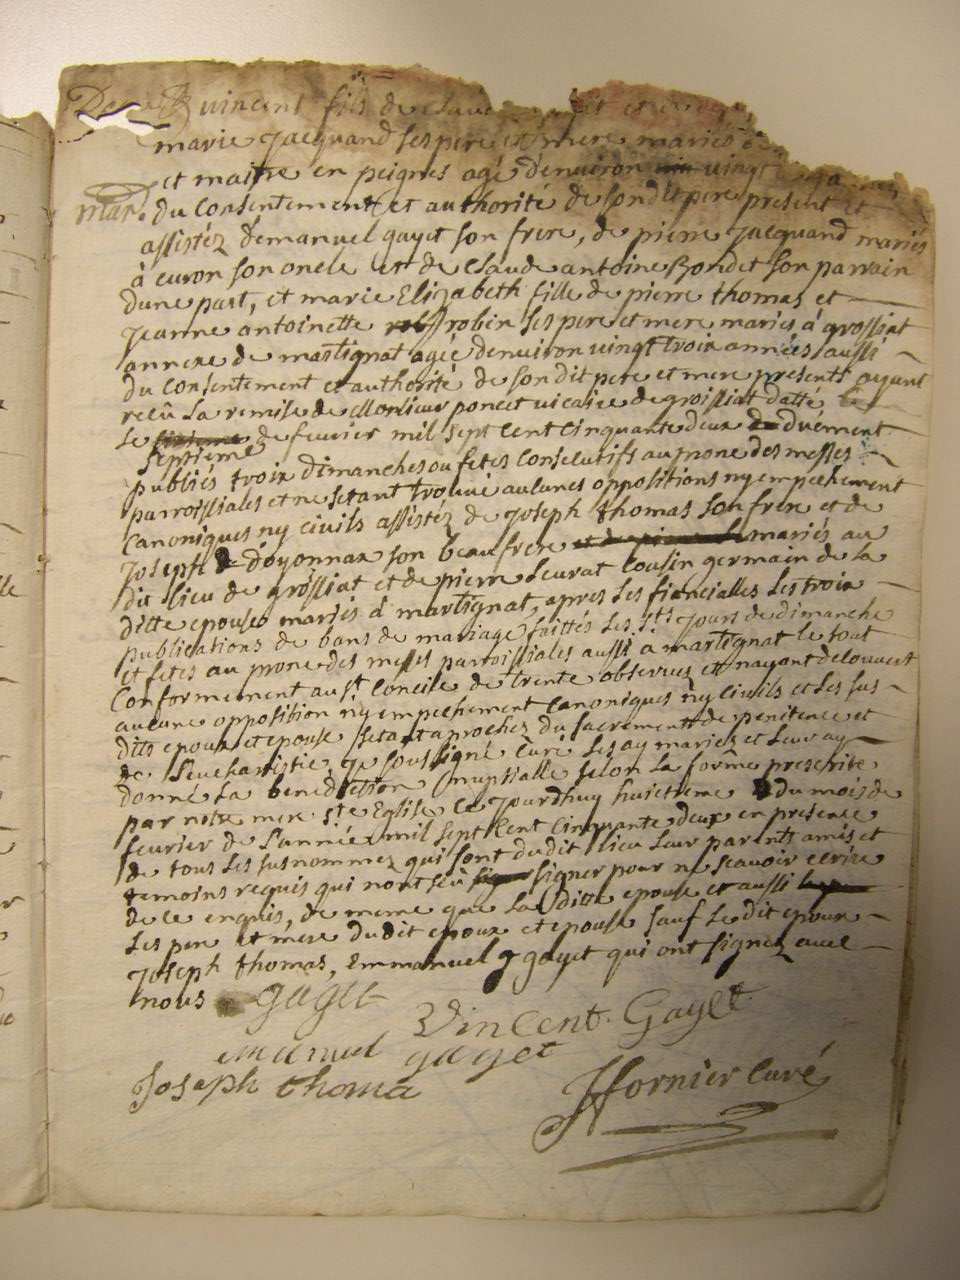 vincent fils de et
marie Jacquand ses pere et mere mariés
et maitre en peignes agé denviron vingt
mar. du Consentement et authorité de son dit pere present et
assistéz demanuel gayet son frere, de pierre Jacquand mariés
á euron son oncle et de Claude antoine Bondet son parrain
dune part, et marie Elizabeth fille de pierre thomas et
Jeanne antoinette robin ses pere et mere mariés á grossiat
annexe de martignat agée denviron vingt troix années aussi
du Consentement et authorité de son dit pere et mere presents ayant
recû la remise de Monsieur poncet vicaire de groissiat datte
le septieme de fevrier mil sept cent cinquante deux duëment
publiés troix dimanches ou fetes consecutifs au prone des messes
parroissiales et ne setant trouvé aucunes oppositions ny empechement
Canoniques ny civils assistéz de Joseph thomas son frere et de
Joseph doyonnax son beaufrere mariés au
dit lieu de grossiat et de pierre Leurat cousin germain de la
ditte epouse mariés á martignat, apres les fiancialles les troix
publications de bans de mariage faittes les sts Jours de dimanche
et fetes au prone des messes parroissiales aussi á martignat le tout
Conformement au st Concile de trente observees et nayant decouvert
aucune opposition ny empechement Canoniques ny civils et les sus
dits epoux et epouse setant aprochez du sacrement de penitence et
de Leucharistie, Je soussigné Curé les ay mariez et leur ay
donné la benediction nuptialle selon la forme prescritte
par notre mere ste Eglise ce Jourdhuy huictieme du mois de
fevrier de Lannée mil sept cent cinquante deux en presence
de tous les susnommez qui sont dudit lieu leur parents amis et
temoins requis qui nont sçu signer pour ne scavoir ecrire
de ce enquis, de meme que la ditte epouse et aussi
les pere et mere dudit epoux et epouse sauf le dit epoux
Joseph thomas, Emmanuel gayet qui ont signez avec
nous gayet
Vincent. Gayet.
emanuel gayet
Joseph thoma
fornier Curé